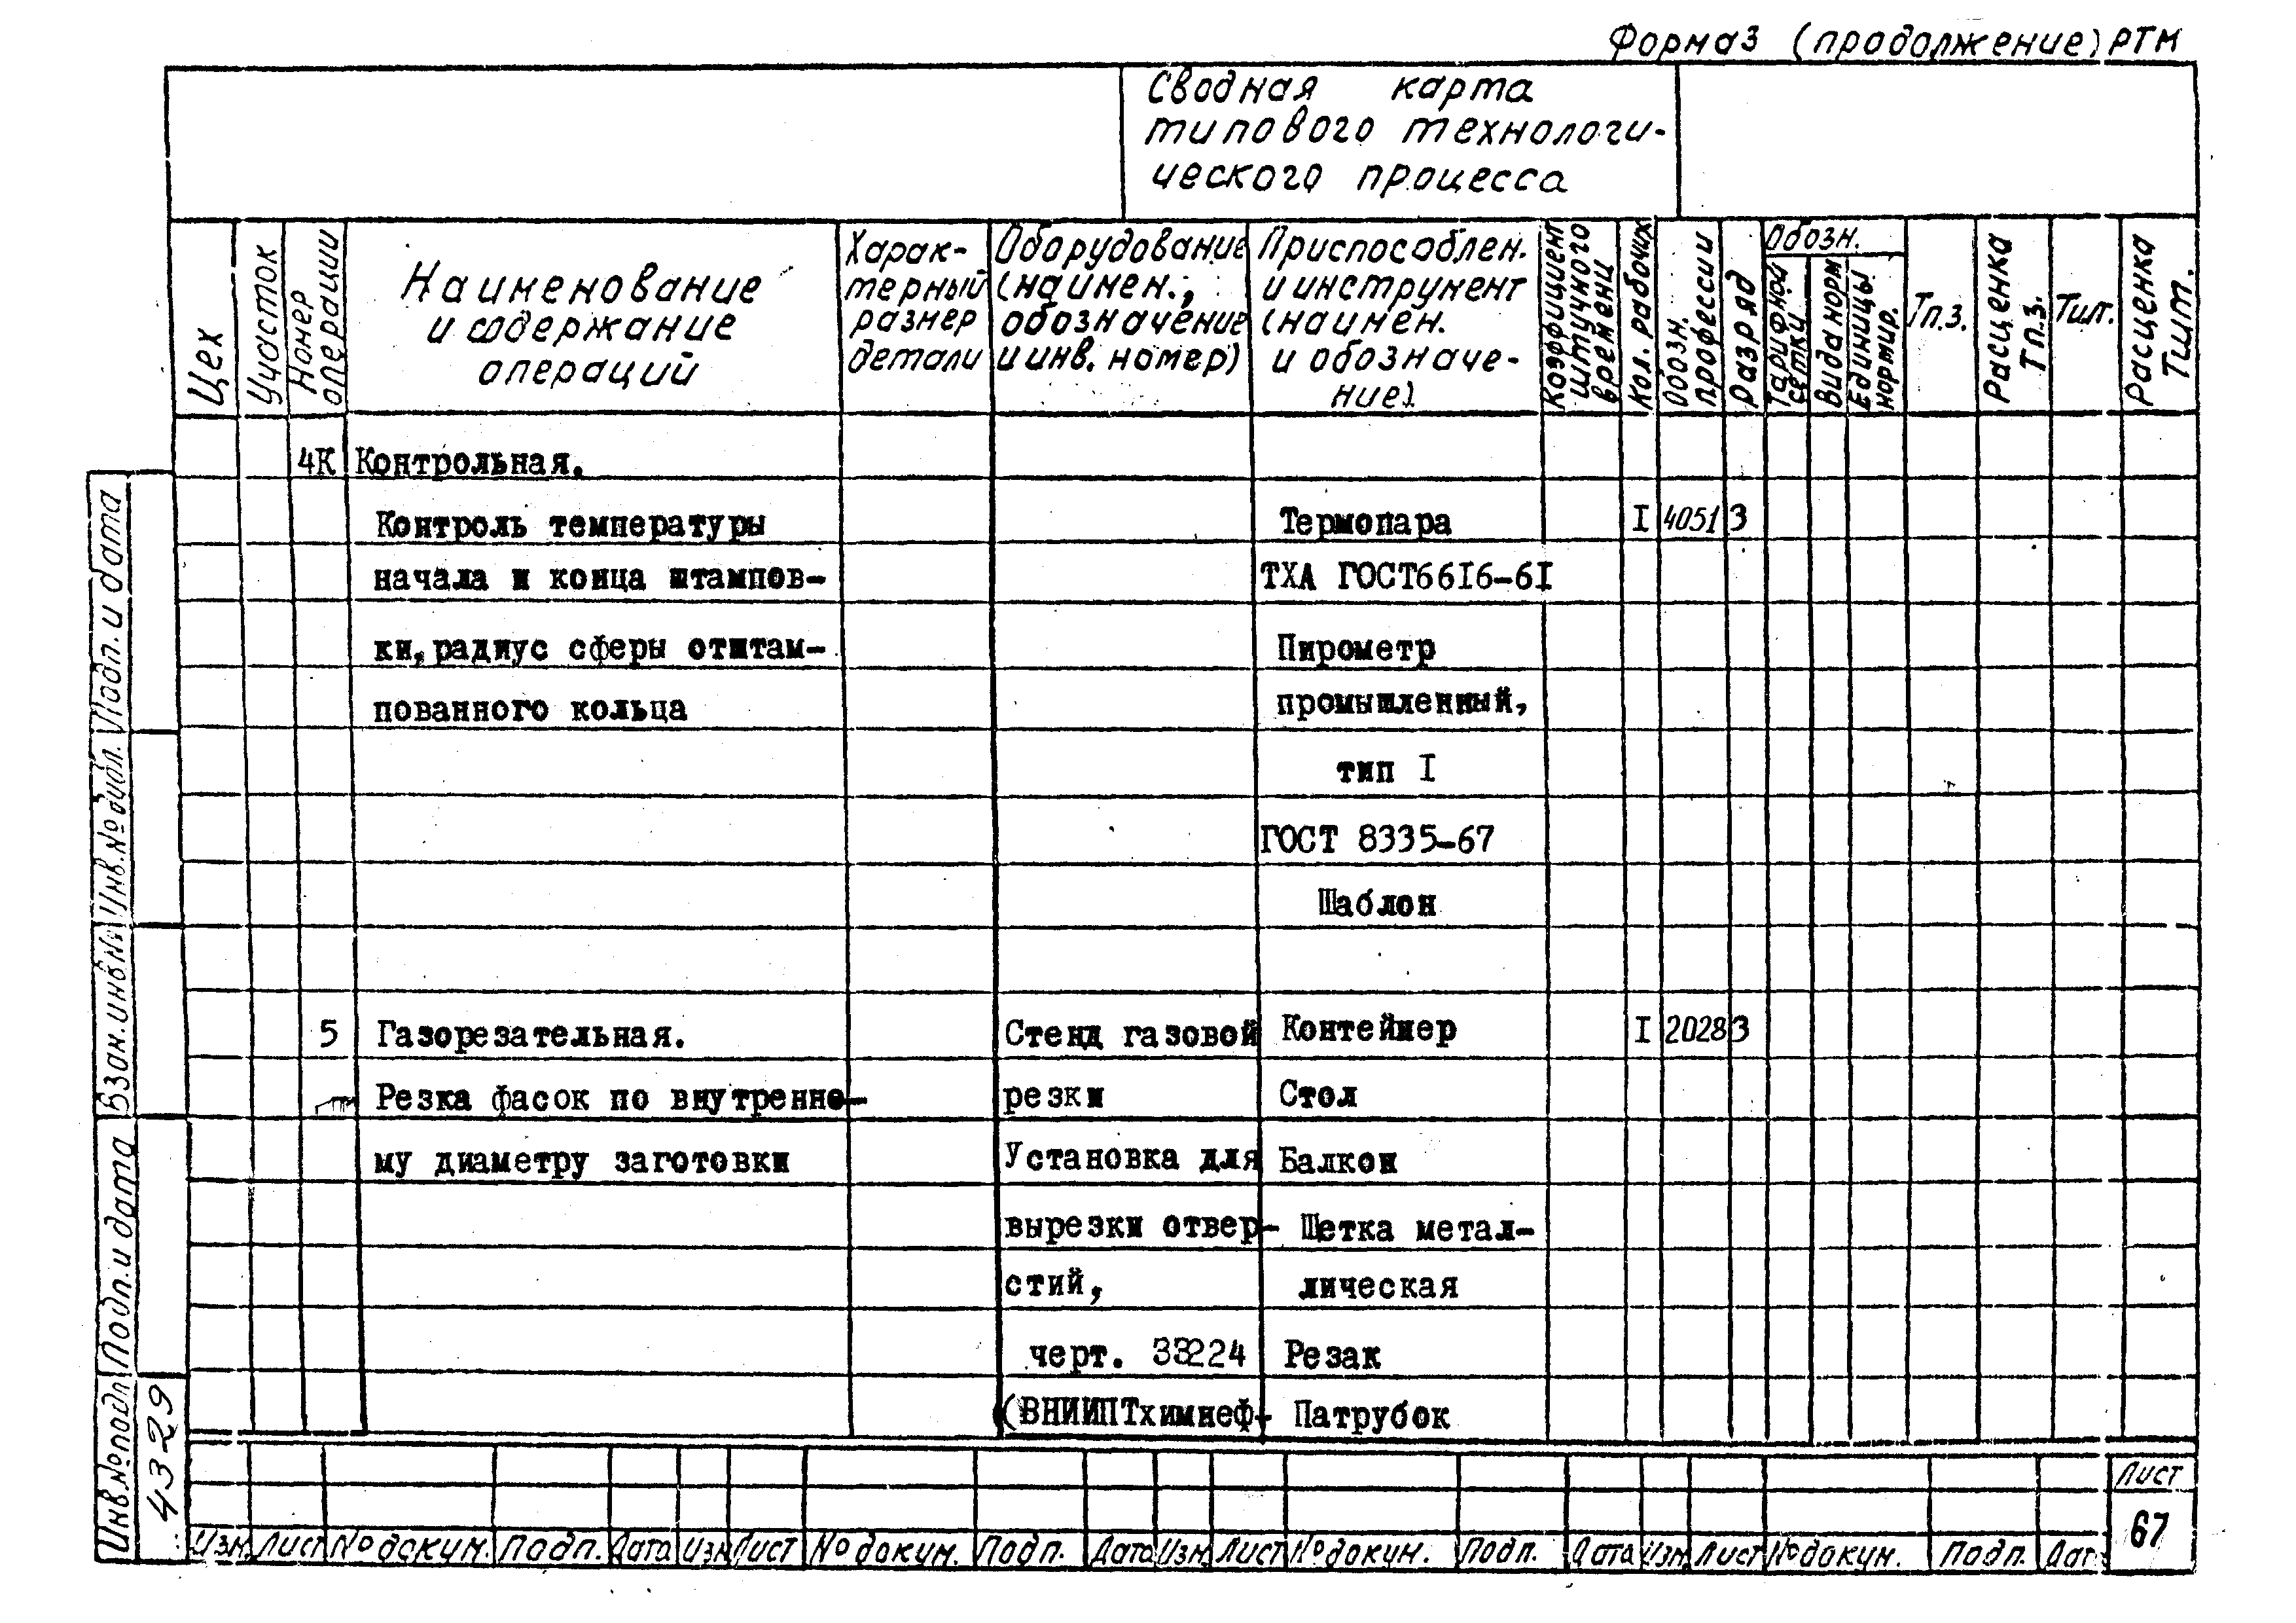 Форма3 (продолжение) РТМ
Сводная карта
типового технологи-
ческого процесса
Цех
Участок
Номер
операции
Наименование
и содержание
операций
Харак-
терный
размер
детали
Оборудование
(наимен.,
обозначение
и инв. номер)
Приспособлен.
и инструмент
(наимен.
и обозначе-
ние).
Коэффициент
штучного
времени
Кол. рабочих
Обозн.
профессии
Разряд
Обозн.
Тарифной
сетки
Вида норм
Единицы
нормир.
Тп.з.
Расценка
Тп.з.
Тшт.
Расценка
Тшт.
4К Контрольная.
Контроль температуры Термопара I 4051 3
начала и конца штампов- ТХА ГОСТ6616-6I
ки, радиус сферы отштам- Пирометр
пованного кольца промышленный,
тип I
ГОСТ 8335-67
Шаблон
5 Газорезательная. Стенд газовой Контейнер I 2028 3
Резка фасок по внутренне- резки Стол
му диаметру заготовки Установка для Балкон
вырезки отвер- Щетка метал-
стий, лическая
черт. 33224 Резак
(ВНИИПТхимнеф- Патрубок
Подп. и дата
Инв.№ дубл.
Взам. инв№
Подп. и дата
Инв.№ подл
4329
Изм. Лист № докум. Подп. Дата Изм Лист № докум. Подп. Дата Изм. Лист № докум. Подп. Дата Изм. Лист № докум. Подп. Дат
Лист
67